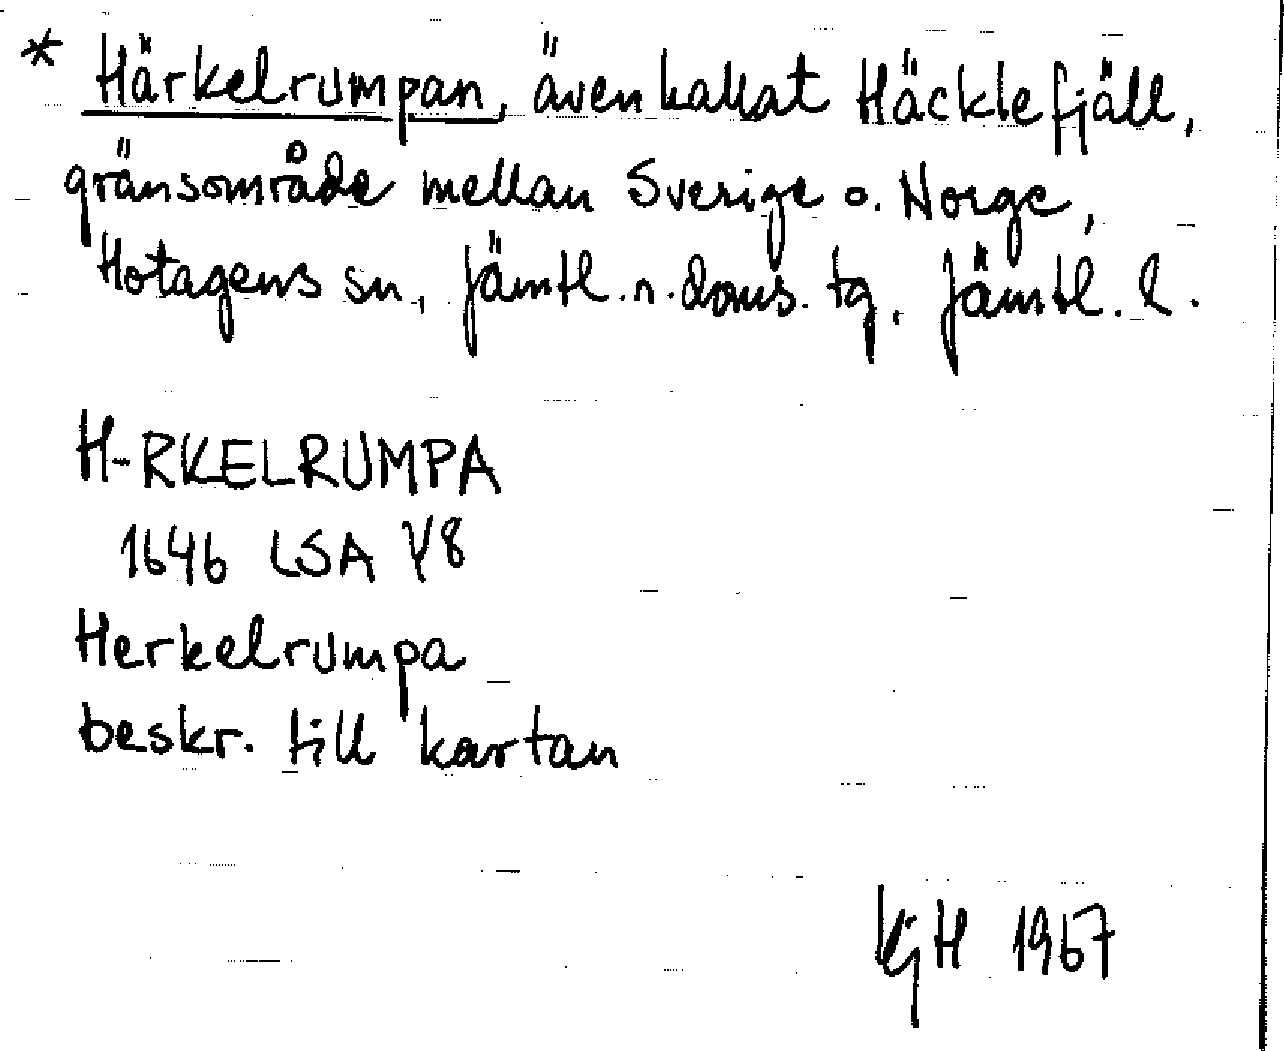 * Härkelrumpan, även kallat Häcklefjäll,
gränsområde mellan Sverige o. Norge,
Hotagens sn, Jämtl. n. doms. tg, Jämtl. l.
H-RKELRUMPA
1646 LSA Y8
Herkelrumpa
beskr. till kartan
KjH 1967